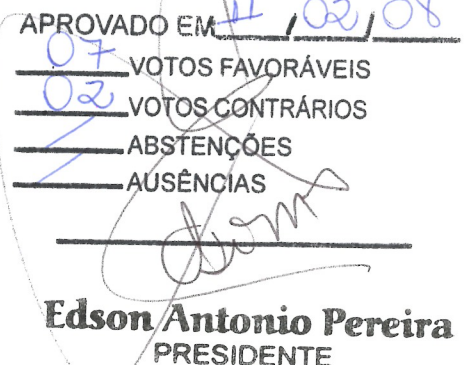 APROVADO EM 11 / 02 / 08
07 VOTOS FAVORÁVEIS
02 VOTOS CONTRÁRIOS
ABSTENÇÕES
AUSÊNCIAS
Edson Antonio Pereira
PRESIDENTE